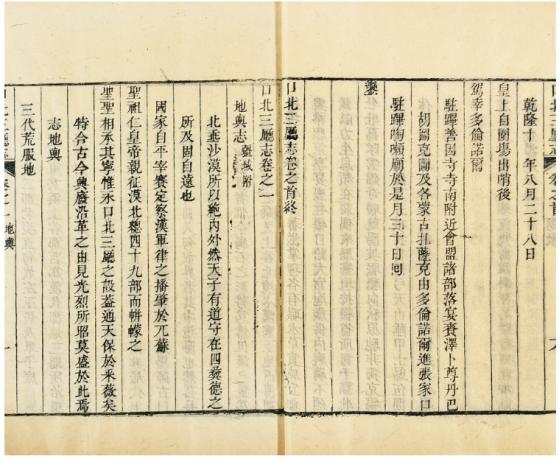 三廳志 卷之首
乾隆十 年八月二十八日
皇上自圍場出哨後
駕幸多倫諾爾
駐蹕善因寺寺南附近會盟諸部落宴賚澤卜尊丹巴
胡圖克圖及各蒙古扎薩克由多倫諾爾進張家口
駐蹕陶廟於是月三十日回
鑾
口北三廳志卷之首終
口北三廳志卷之一
地輿志 疆域附
北垂沙漠所以絶内外然天子有道守在四彝德之
所及固自遠也
國家自平宰賽定察漢軍律之播肇於兀蘇
聖祖仁皇帝親征漠北四十九部而帡幪之
聖聖相承其寧惟永口北三廳之設蓋通天保於采薇矣
特合古今興廢沿革之由見光烈所昭莫盛於此焉
志地輿
三代荒服地
三廳志 卷之一 地輿 一